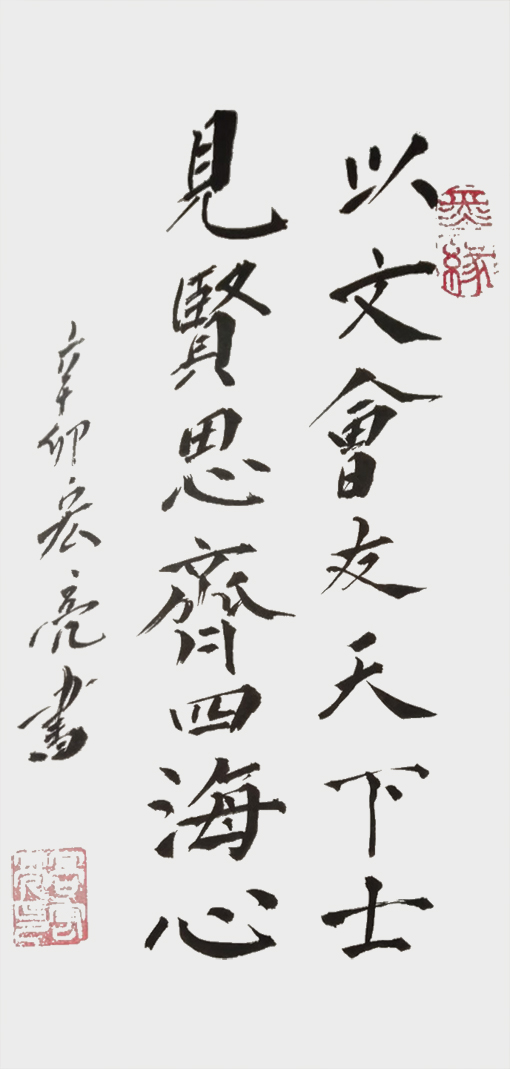 以文會友天下士
見賢思齊四海心
辛卯宏亮書
無緣